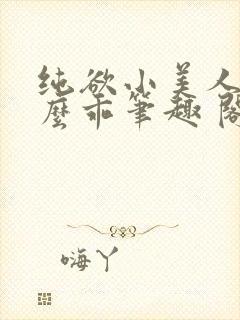 纯欲小美人
么乖笔趣阁
嗨丫